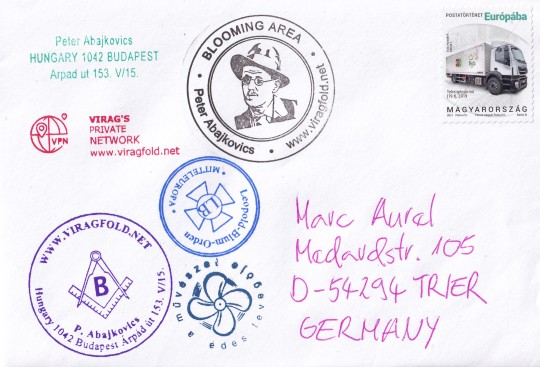 Peter Abajkovics
HUNGARY 1042 BUDAPEST
Árpád út 153. V/15.
VPN
VIRAG'S
PRIVATE
NETWORK
www.viragfold.net
• BLOOMING AREA •
Peter Abajkovics • www.viragfold.net
POSTATÖRTÉNET Európába
MAGYARORSZÁG
• MITTELEUROPA •
Leopold-Blum-Orden
LB
WWW.VIRAGFOLD.NET
B
P. Abajkovics
Hungary 1042 Budapest Árpád út 153. V/15.
művészet előbe
a édes teve
Marc Aurel
Medardstr. 105
D-54294 TRIER
GERMANY